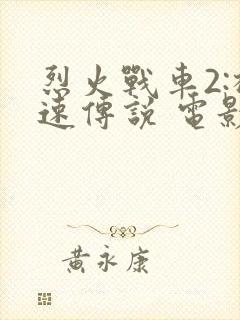 烈火戰車2:
速傳說 電影
黃永康